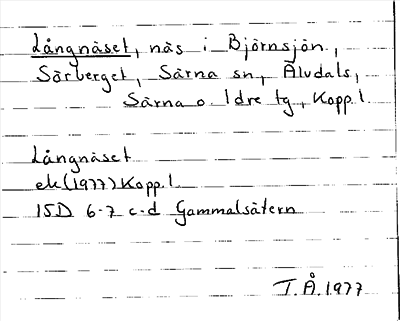 Långnäset, näs i Björnsjön,
Särberget, Särna sn, Älvdals,
Särna o. Idre tg, Kopp. l.
Långnäset
ek (1977) Kopp. l
15D 6-7 c-d Gammalsätern
T. Å. 1977